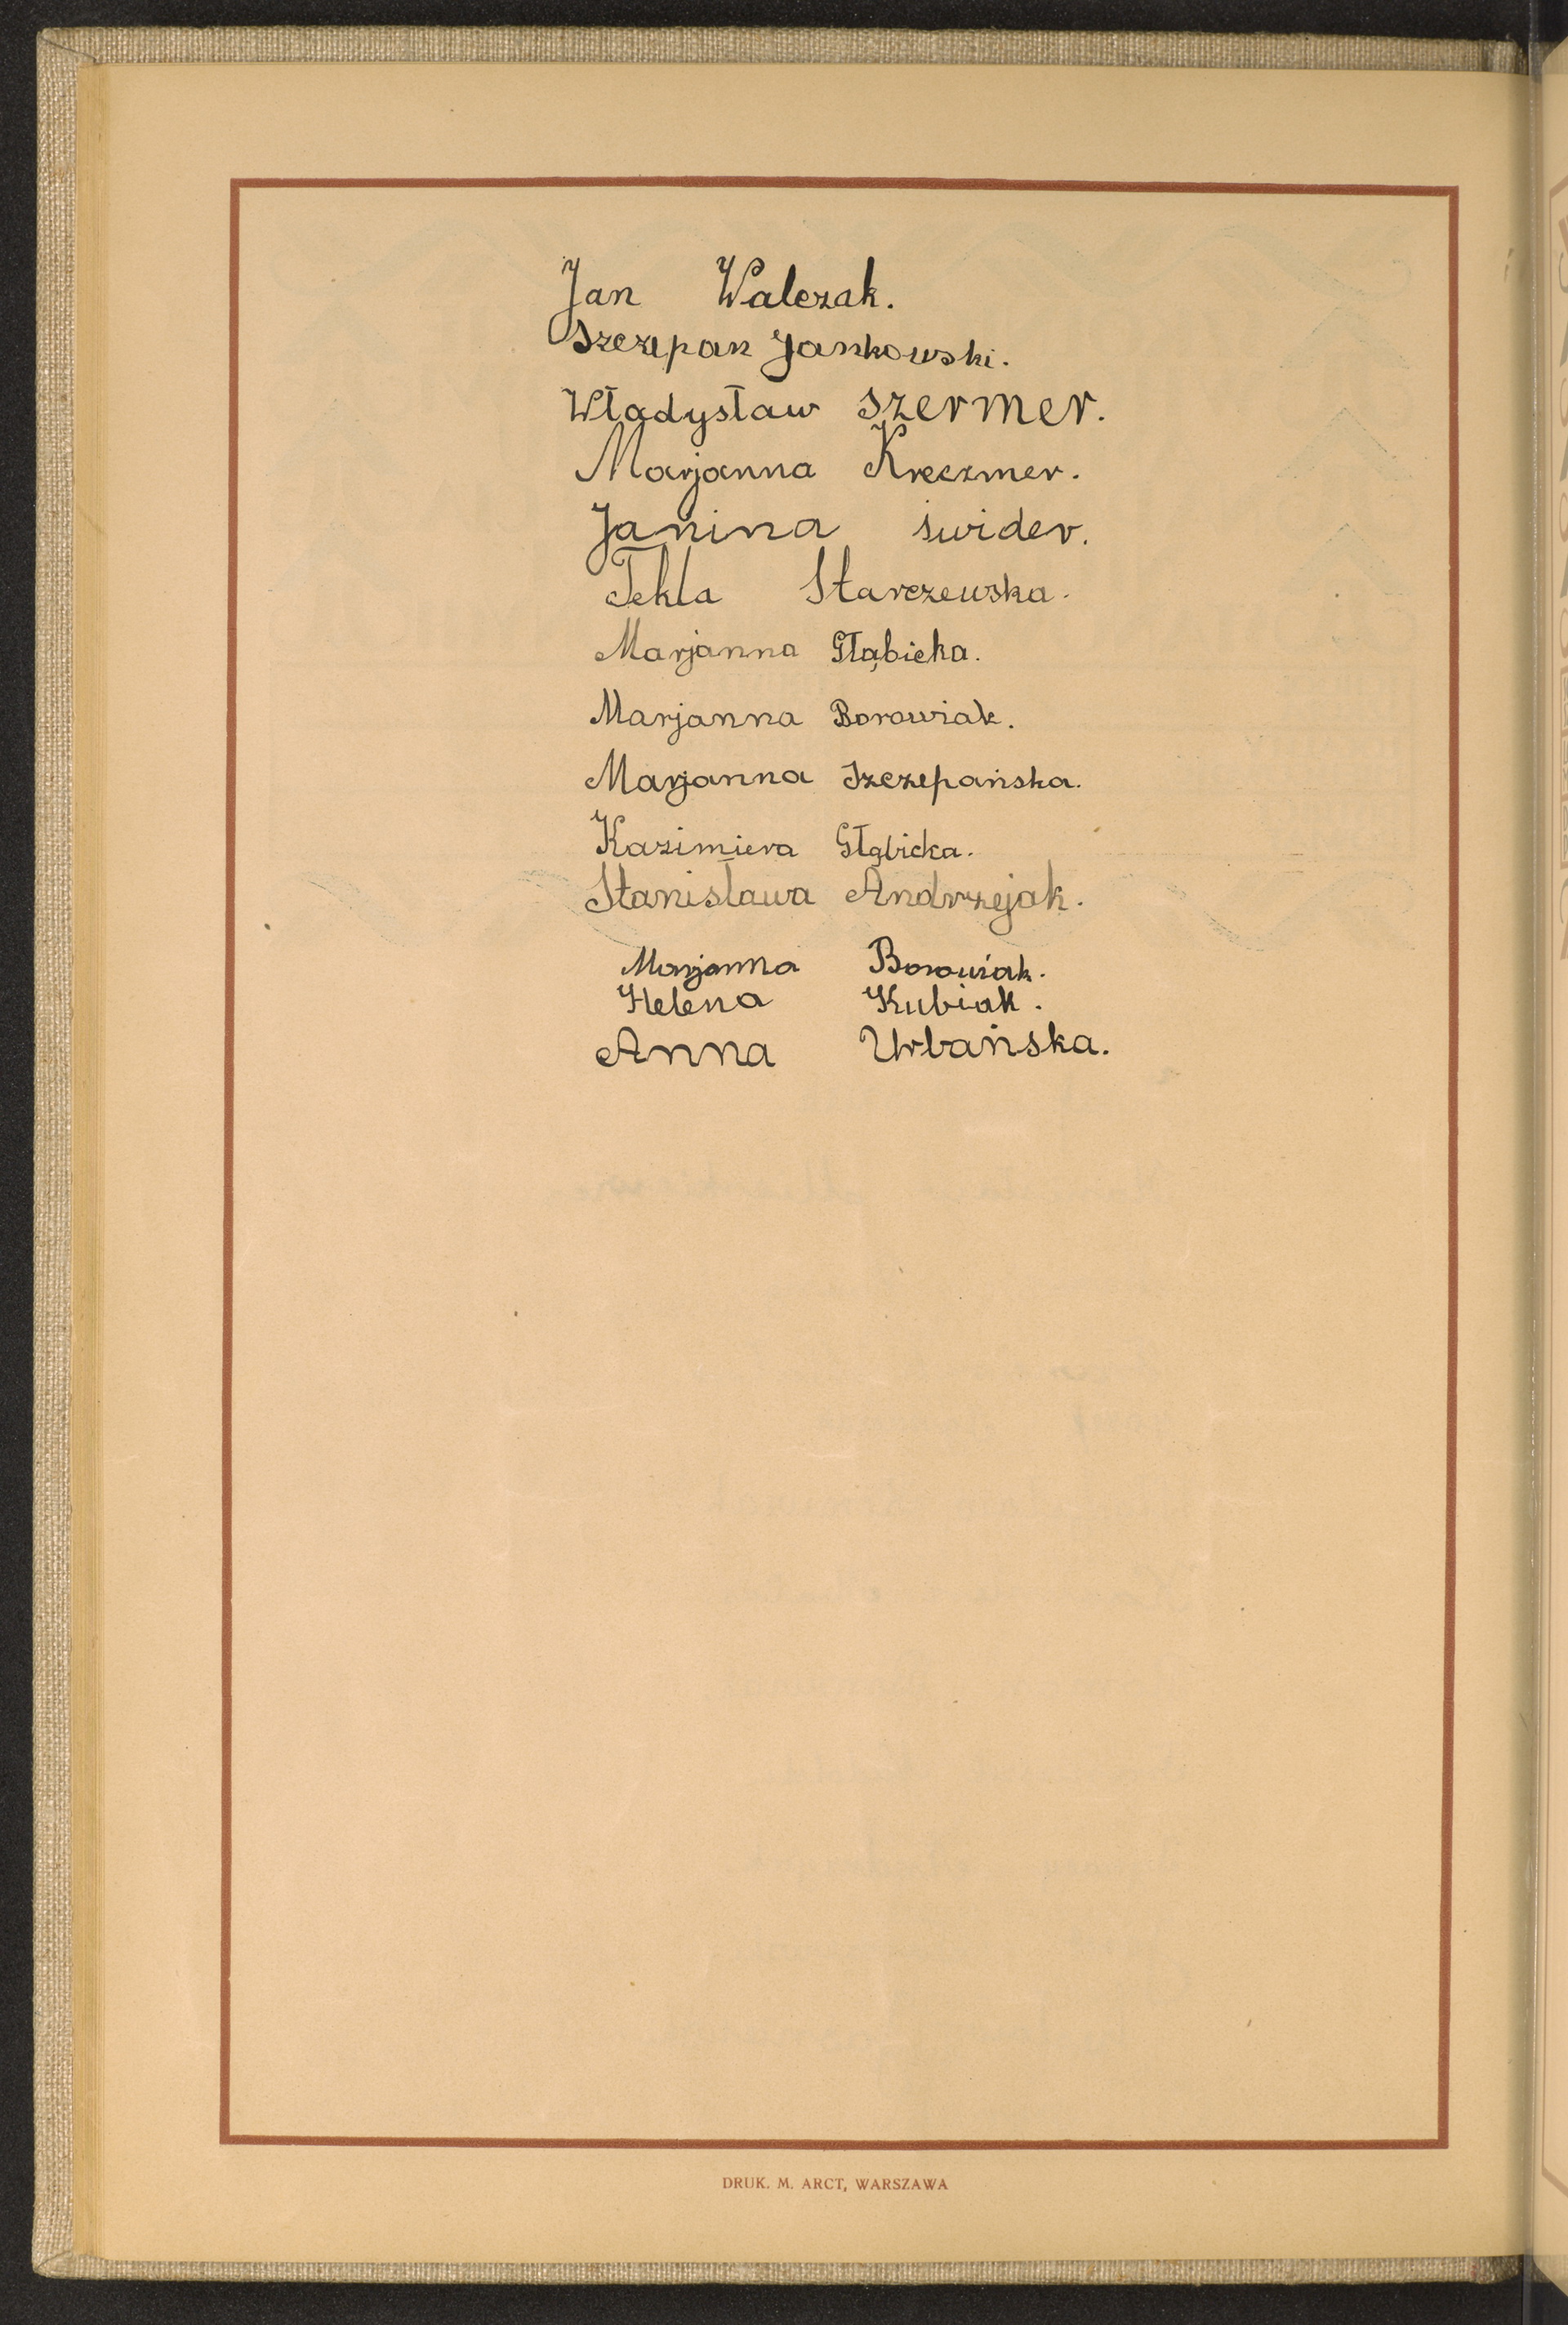 Jan Walczak.
Szczepan Jankowski.
Władysław Szermer.
Marjanna Kreczmer.
Janina świder.
Tekla Starczewska.
Marjanna Głąbicka.
Marjanna Borowiak.
Marjanna Szczepańska.
Kazimiera Głąbicka.
Stanisława Andrzejak.
Marjanna Borowiak.
Helena Kubiak.
Anna Urbańska.
DRUK. M. ARCT, WARSZAWA